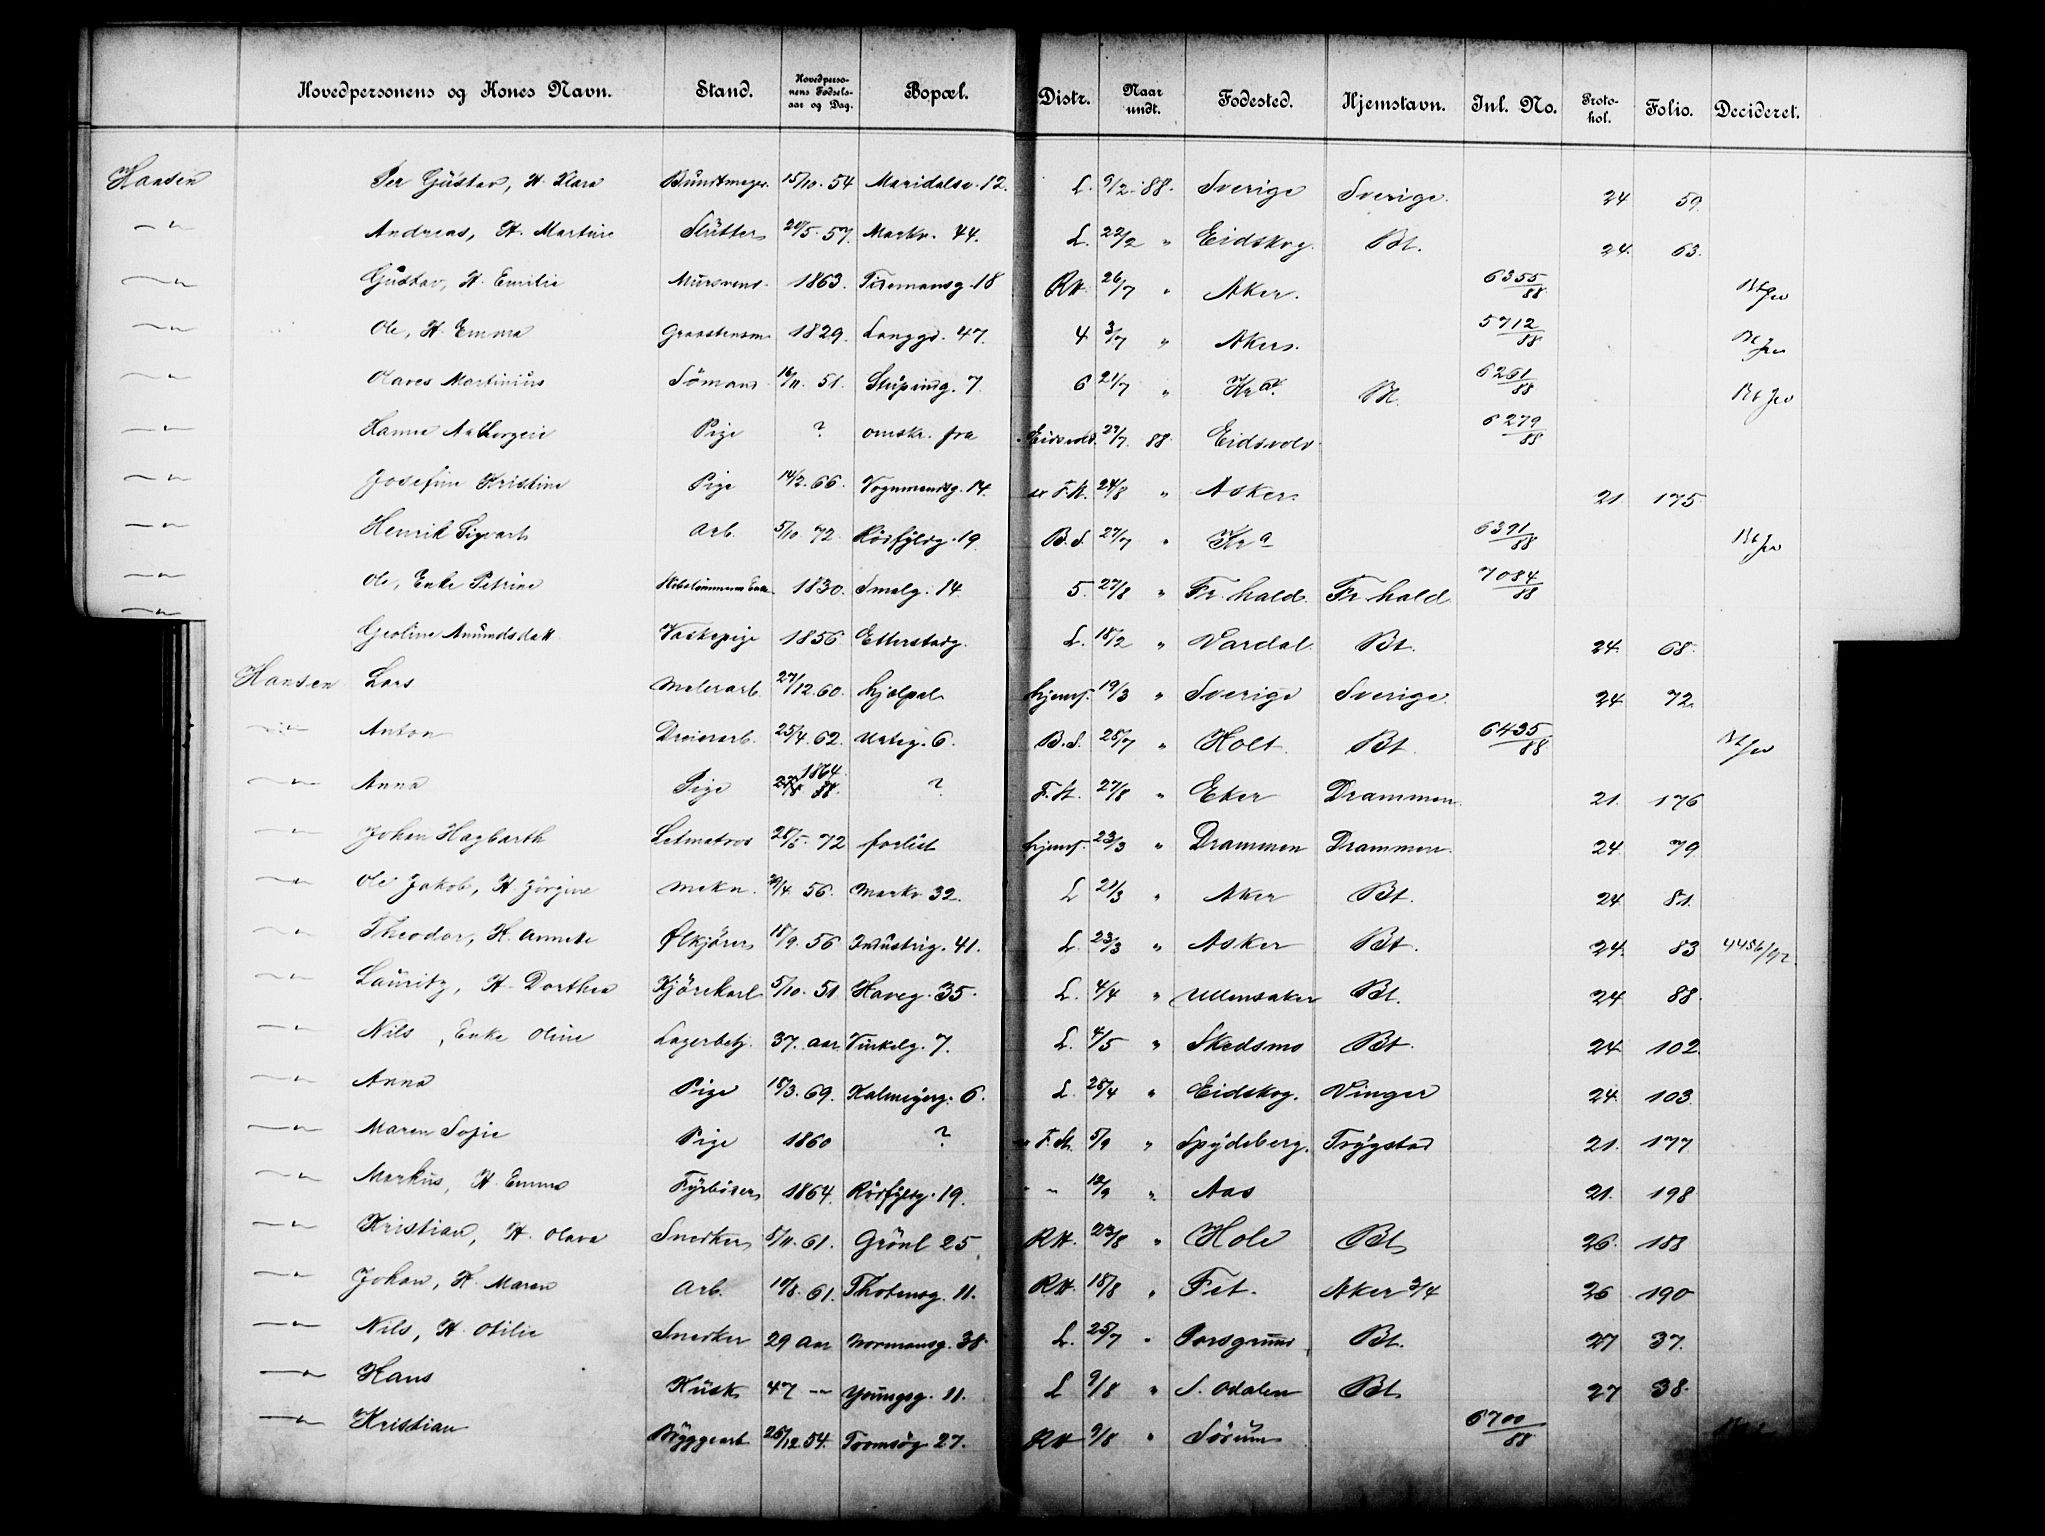 Hovedpersonens og Kones Navn. Stand. Hovedpersonens Fødselsaar og Dag. Bopæl. Distr. Naar undt. Fødested. Hjemstavn. Inl. No. Protokol. Folio. Decideret.
Hansen Per Gustav, H. Klara Buntmager 15/10. 54 Maridalsv. 12. L. 9/2. 88. Sverige Sverige. 24 59.
—"— Andreas, H. Martine Slutter 57. Markv. 44. L. 22/2 " Eidskog. Bt. 24. 63.
—"— Gustav, H. Emilie Mursvens. 1863. Tiremansg. 18 RH. 26/7 " Aker. 6355/88
—"— Ole, H. Emma Graastensm 1829. Langgd. 47. 4 3/7 " Akers. 5712/88
—"— Olaves Martinius Sömand 16/11. 51. Stupindg. 7. 6 21/7 " Kra. Bt. 6261/88
—"— Hanne Pige ? omskr. fra Eidsvold. 27/7. 88. Eidsvold 6279/88
—"— Josefine Kristine Pige 14/2. 66. Vognmandsg. 14. F.H. 24/8 " Asker. 21. 175.
—"— Henrik Sigvart Arb. 5/10. 72. Rödfyldg. 19. B.S. 27/7 " Kra 6391/88
—"— Ole, Enke Petrine 1830. Smalg. 14. 5. 27/8 " Fr. hald. Fr hald. 7084/88
—"— Geoline Amundsdatt Vaskepige 1856 Etterstadg. L. 18/2 " Vardal. Bt. 24. 68.
Hansen Lars Malerarb. 27/12. 60. hjelpel. hjemf. 19/3 " Sverige Sverige. 24 72.
—"— Anton Dreierarb. 25/4. 62. Urteg. 6. B.S. 28/7 " Holt. Bt. 6435/88
—"— Anna Pige 1864. 27/8 88. ? F.H. 27/8 " Eker Drammen. 21. 176
—"— Johan Hagbarth Letmatros 28/5. 72 forlist hjemf. 23/3 " Drammen Drammen. 24. 79
—"— Ole Jakob, H. Jörgine Mekn. 56. Markv 32. L 21/3 " Aker Bt. 24 81.
—"— Theodor, H. Annette Ölkjörer 18/9. 56 Industrig. 41. L. 23/3 " Asker Bt. 24. 83 4456/92.
—"— Lauritz, H. Dorthea Kjörekarl 5/10. 51 Haveg. 35. L. 4/4 " Ullensaker Bt. 24 88.
—"— Nils, Enke Oline Lagerbetj. 37. aar Vinkelg. 7. L. 4/5 " Skedsmo Bt. 24. 102.
—"— Anna Pige 18/3. 69. Kalmeyerg. 6. L. 28/4 " Eidskog. Vinger 24. 103.
—"— Maren Sofie Pige 1860 ? F.H. 5/9 " Spydeberg. Trygstad 21. 177
—"— Markus, H. Emma Fyrböter 1864. Rödfyldg. 19. " 12/9 " Aas 21. 198
—"— Kristian, H. Olava Snedker 5/11. 61. Grönl 25. RH. 23/8 " Hole Bt 26. 188
—"— Johan, H. Maren Arb. 19/8. 61. Thotensg. 11. RH. 18/8 " Fet. Aker 3/4 26. 190
—"— Nils, H. Otilie Snedker 29 aar Normansg. 38. L. 25/7 " Porsgrund Bt. 27 37.
—"— Hans Kusk 47 —"— Youngsg. 11. L 9/8 " S. Odalen Bt 27 38.
—"— Kristian Byggearb 26/12 54. Tromsög 27. RH 9/8 " Sörum 6700/88